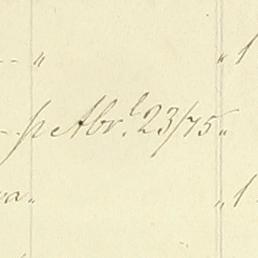 " " 1
p Abr.l 23/75."
ra. " 1